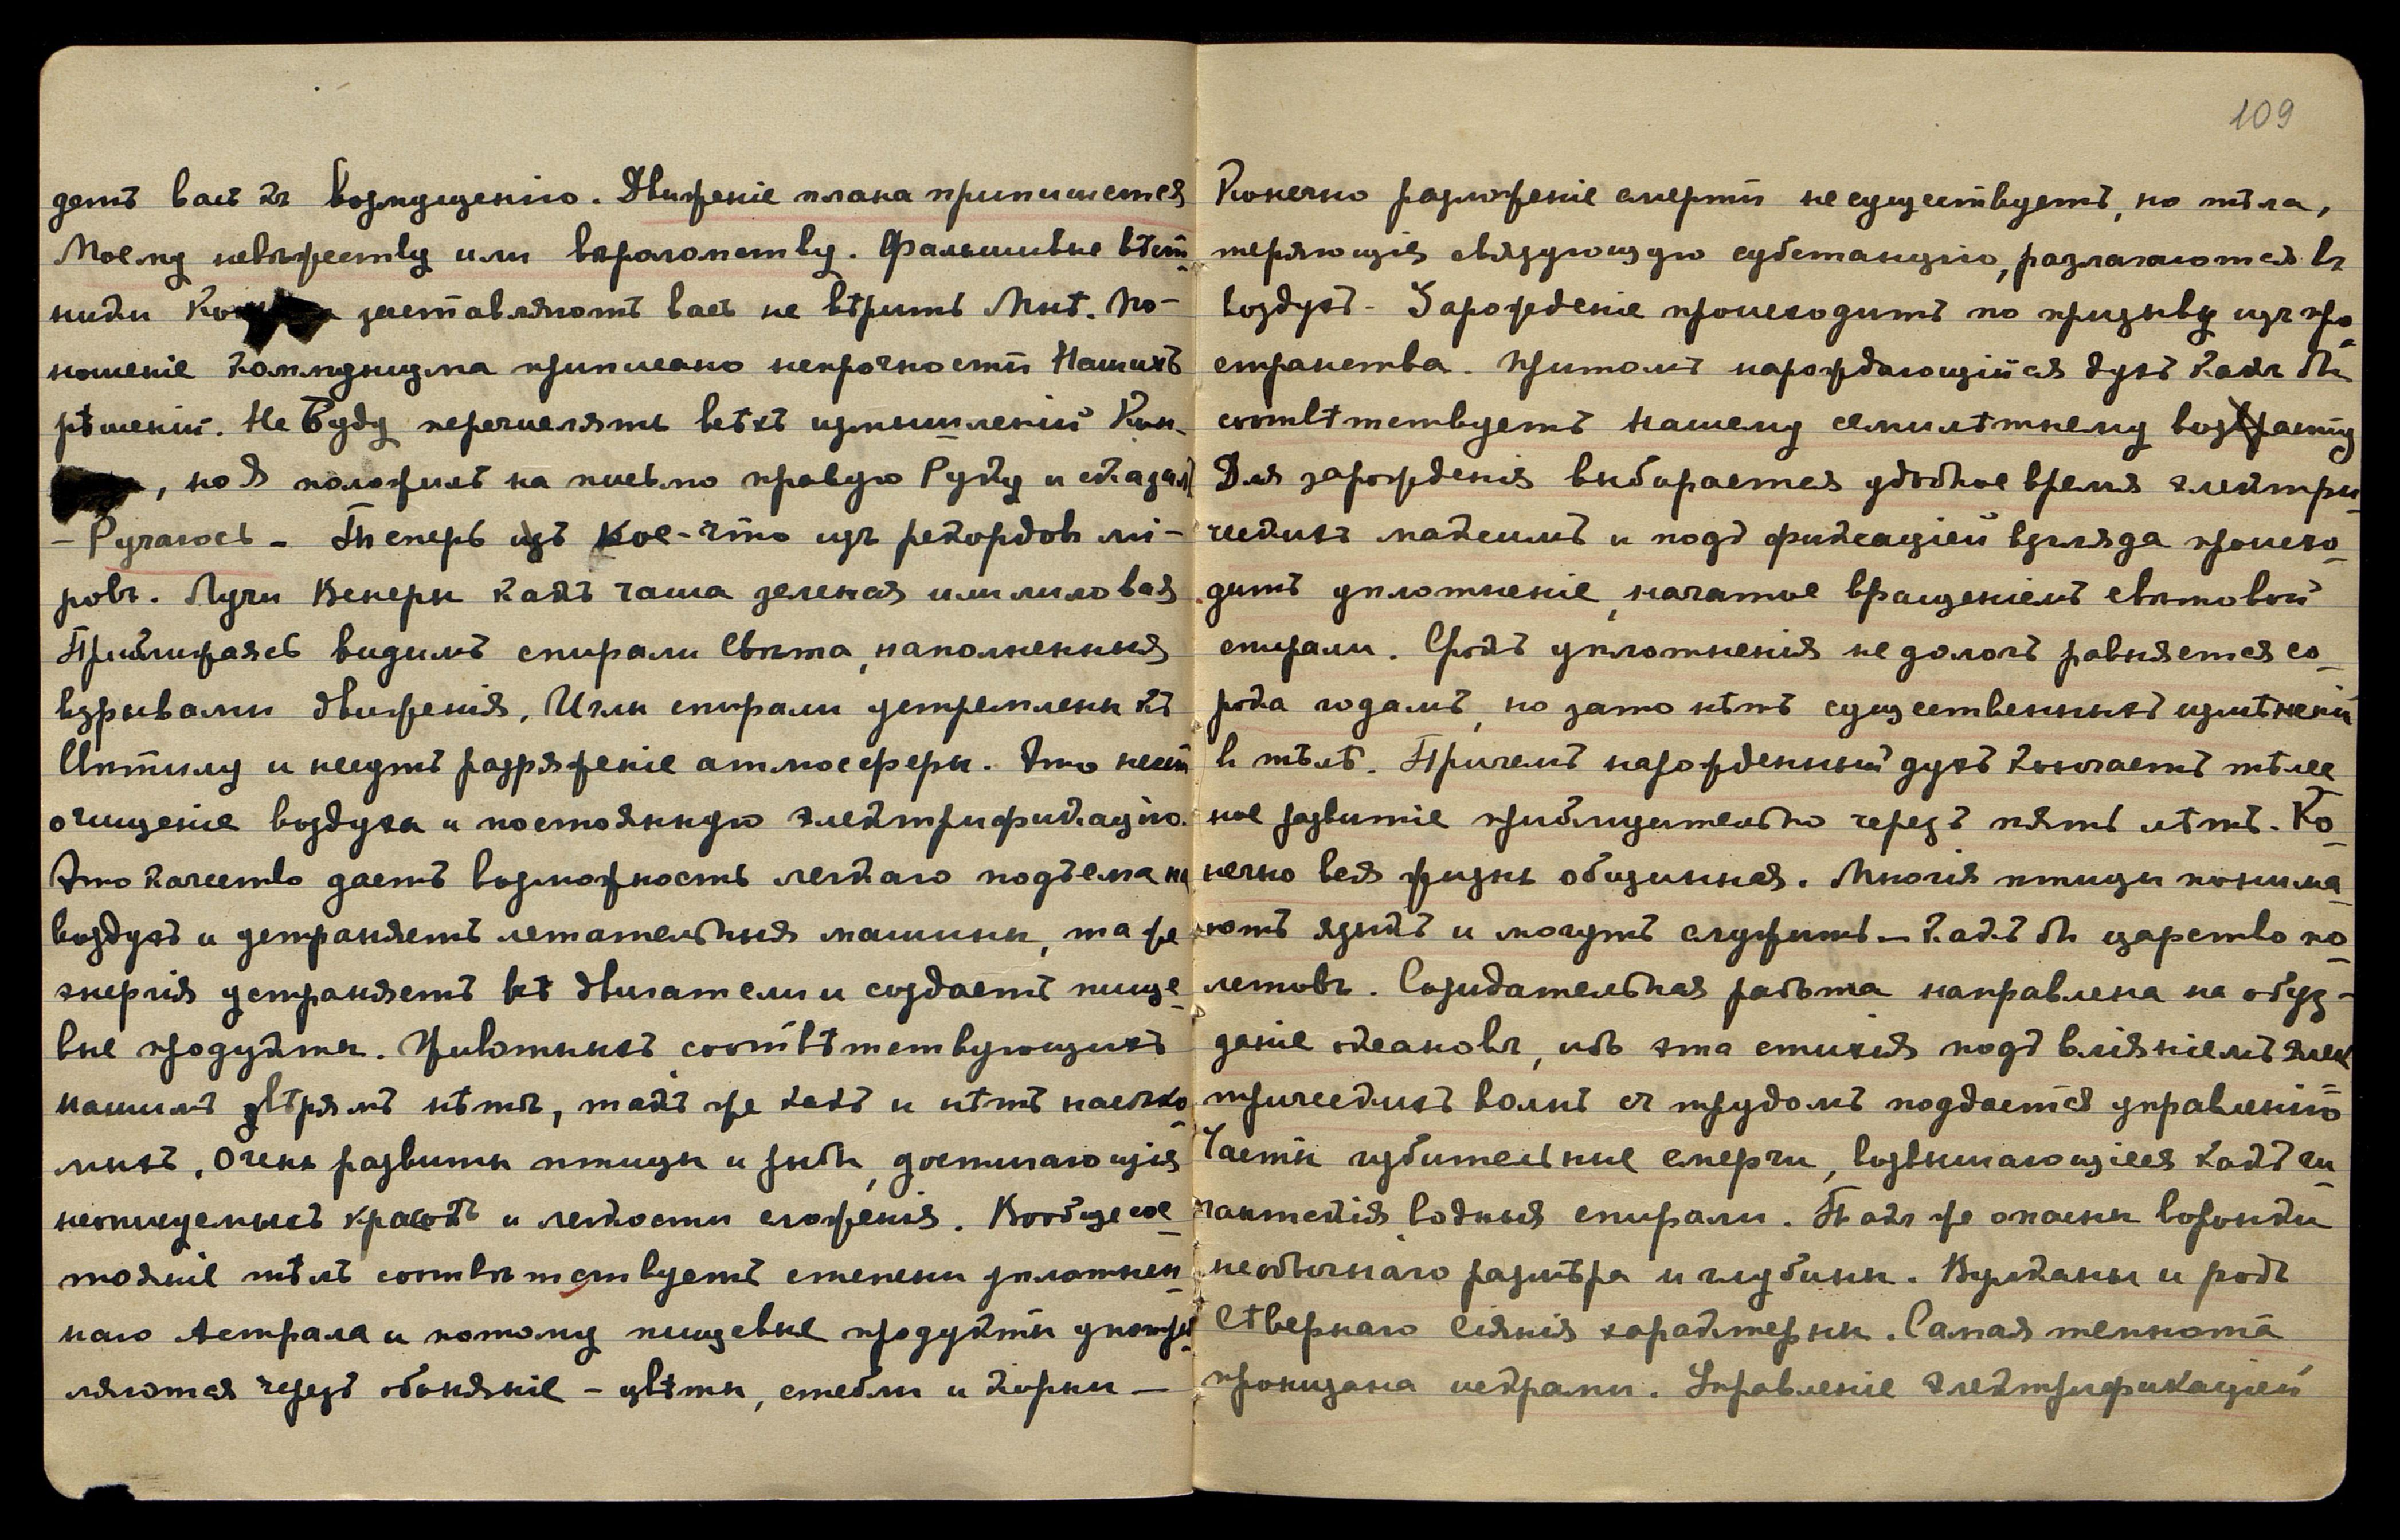 детъ васъ къ возмущенію. Движеніе плана припишется
Моему невѣжеству или вѣроломству. Фальшивые вѣст-
ники заставляютъ васъ не вѣрить Мнѣ. По-
ношеніе коммунизма приписано непрочности Нашихъ
рѣшеній. Не Буду перечислять всѣхъ измышленій
, но Я положилъ на письмо правую Руку и сказалъ
– Ручаюсь – Теперь кое-что изъ рекордовъ мі-
ровъ. Лучи Венеры какъ чаша зеленая или лиловая
Приближаясь видимъ спирали Свѣта, наполненныя
взрывами движенія. Иглы спирали устремлены къ
и несутъ разряженіе атмосферы. Это несетъ
очищеніе воздуха и постоянную электрификацію.
Это качество даетъ возможность легкаго подъема на
воздухъ и устраняетъ летательныя машины, та же
энергія устраняетъ всѣ двигатели и создаетъ пище-
вые продукты. Животныхъ соотвѣтствующихъ
нашимъ звѣрямъ нѣтъ, такъ же какъ и нѣтъ насѣко-
мыхъ. Очень развиты птицы и рыбы, достигающія
неописуемыхъ красокъ и легкости сложенія. Вообще сос-
тояніе тѣлъ соотвѣтствуетъ степени уплотнен-
наго Астрала и потому пищевые продукты употреб-
ляются черезъ обоняніе – цвѣты, стебли и корни –
109
Конечно разложеніе смерти не существуетъ, но тѣла,
теряющія связующую субстанцію, разлагаются въ
воздухѣ – Зарожденіе происходитъ по призыву изъ про-
странства. Притомъ нарождающійся духъ какъ бы
соотвѣтствуетъ нашему семилѣтнему возрасту
Для зарожденія выбирается удобное время электри-
ческихъ максимъ и подъ фиксаціей взгляда происхо-
дитъ уплотненіе, начатое вращеніемъ свѣтовой
спирали. Срокъ уплотненія не дологъ равняется со-
рока годамъ, но зато нѣтъ существенныхъ измѣненій
в тѣлѣ. Причемъ нарожденный духъ кончаетъ тѣлес
ное развитіе приблизительно черезъ пять лѣтъ. Ко-
нечно вся жизнь общинная. Многія птицы понима-
ютъ языкъ и могутъ служить – какъ бы царство по-
летовъ. Созидательная работа направлена на обуз-
даніе океановъ, ибо эта стихія подъ вліяніемъ элек
трическихъ волнъ съ трудомъ поддается управленію
Часты губительные смерчи, возвышающіеся какъ ги-
гантскія водныя спирали. Такъ же опасны воронки
необычнаго размѣра и глубины. Вулканы и родъ
Сѣвернаго Сіянія характерны. Самая темнота
пронизана искрами. Управленіе электрификаціей